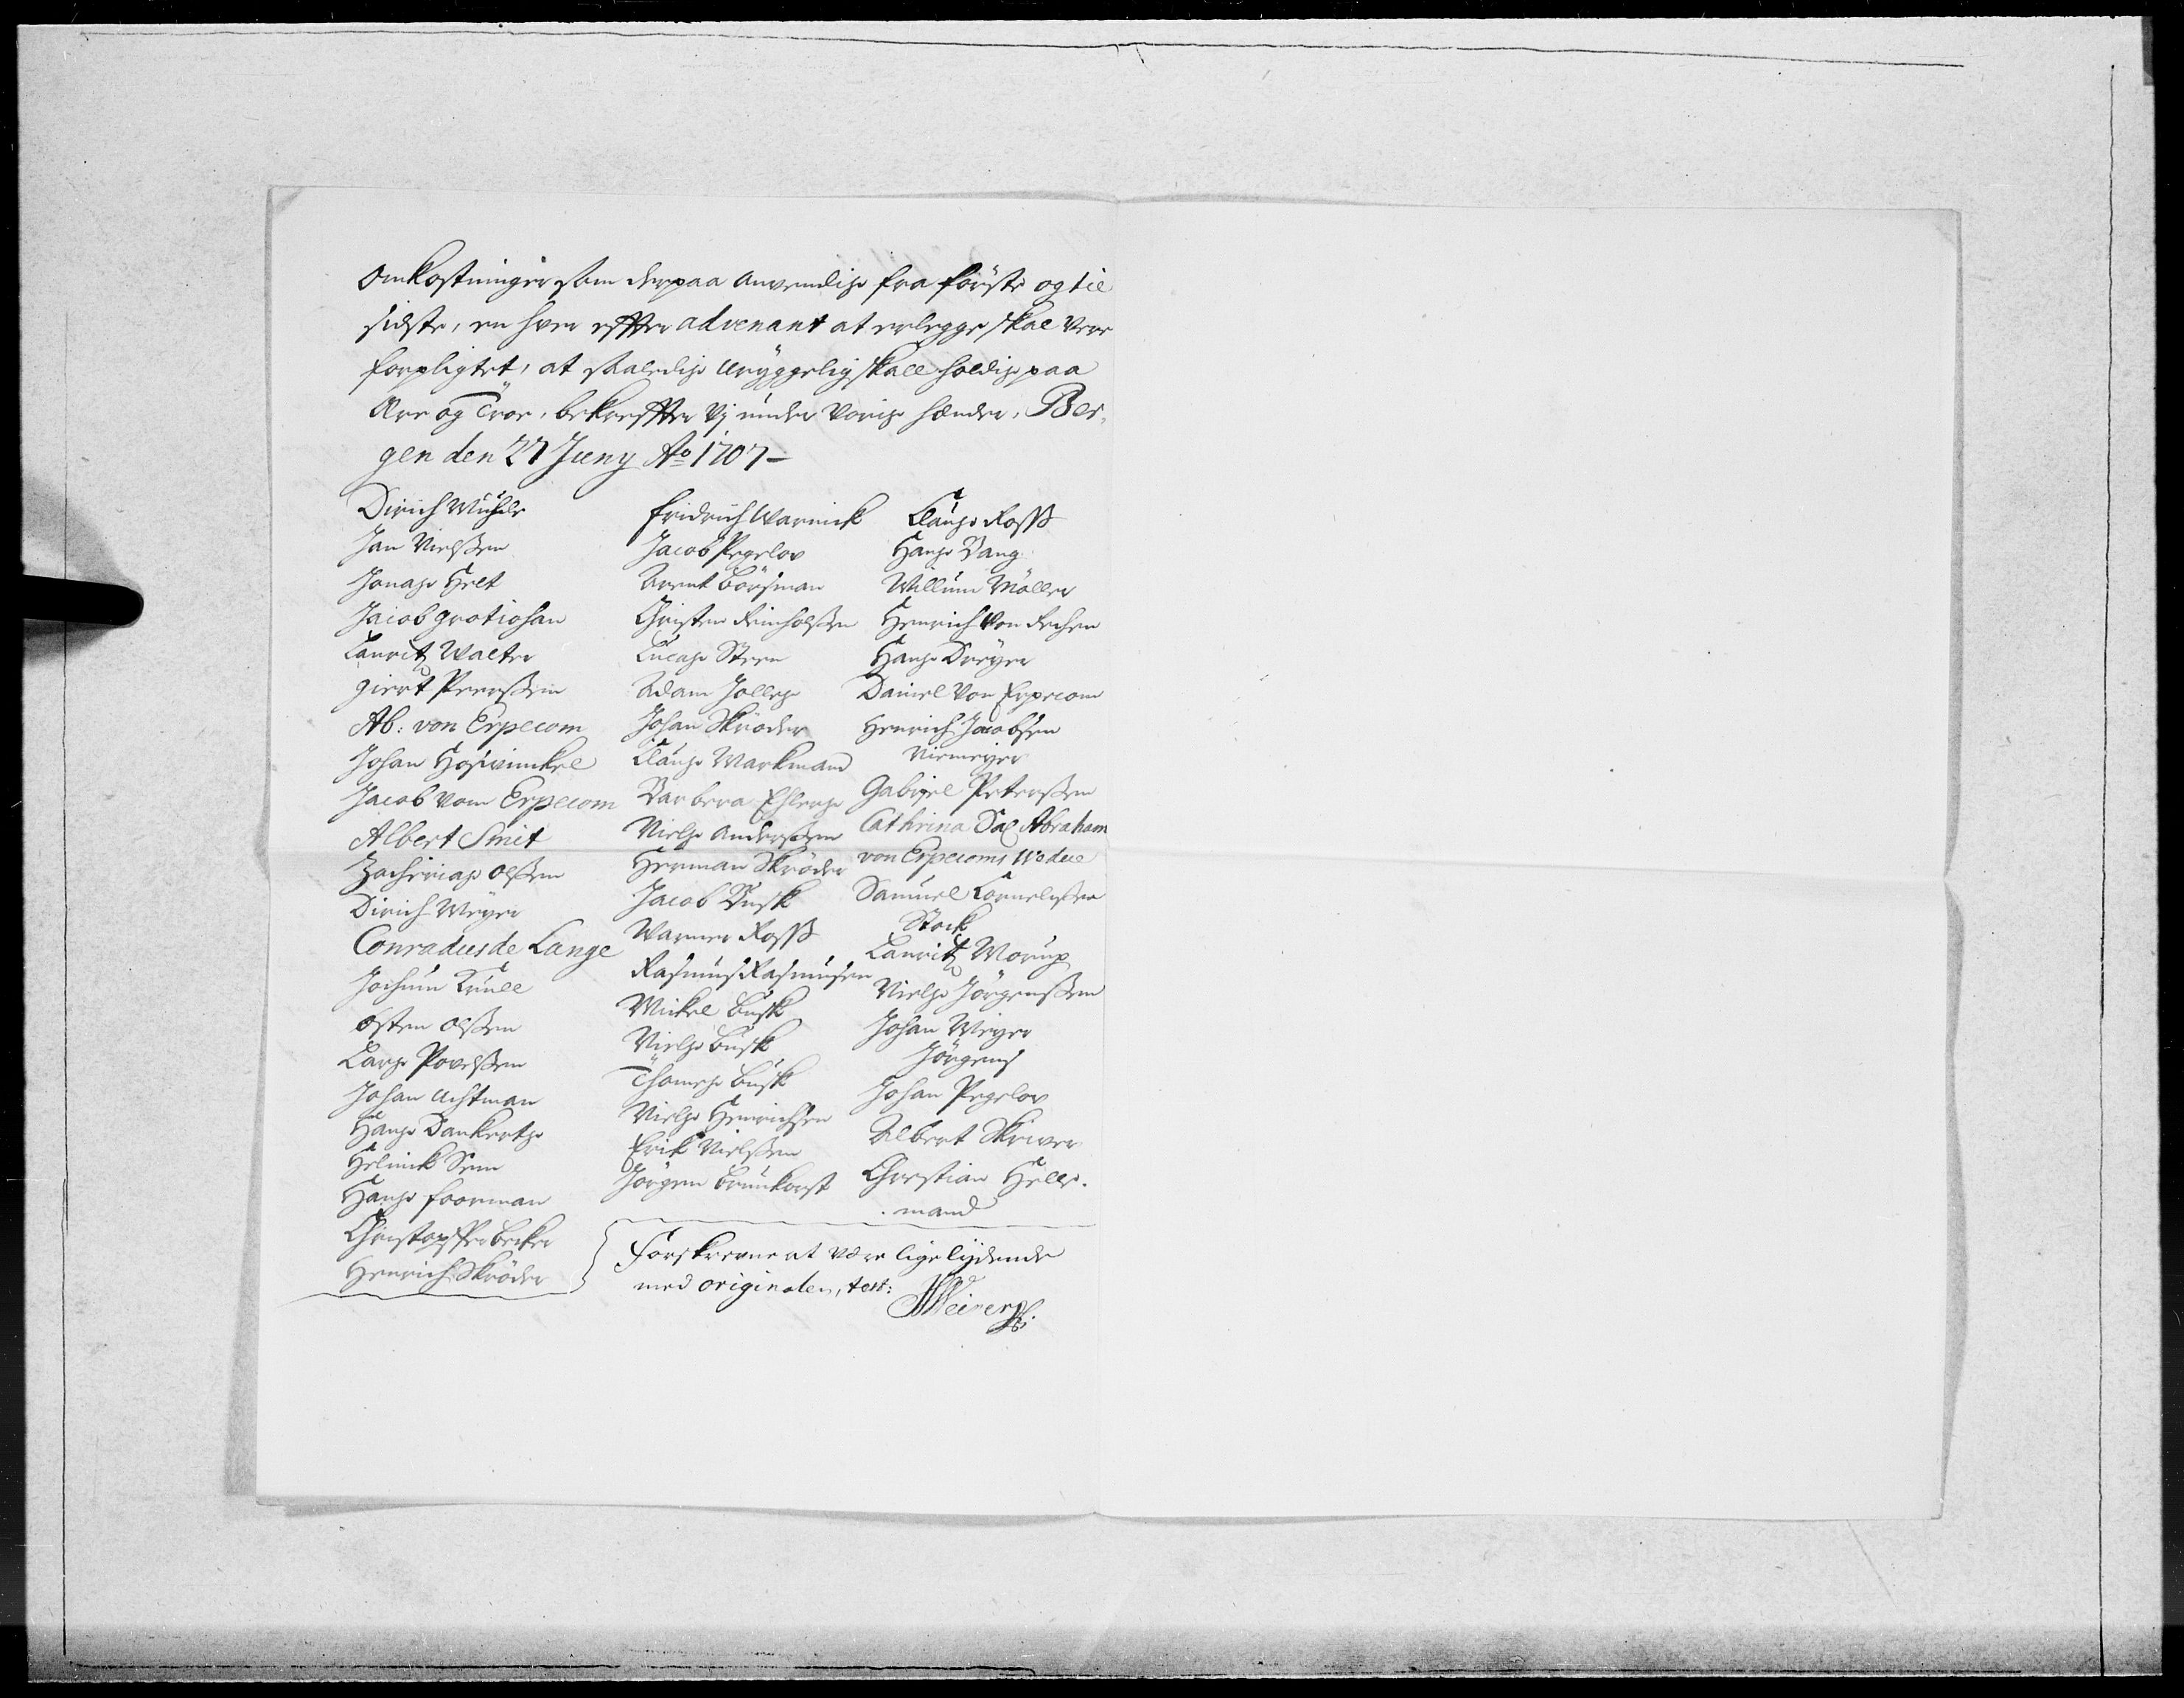 Omkostninger som derpaa anvendis fra förste og til
sidste, en hver effter advenant at erlegge skal være
forpligtet, at saaledis uryggelig skall holdis paa
Ære og Troe, bekreffter Vi under Voris hænder, Ber-
gen den 27 Juny Ao 1707-
Dirich Muhle
Jan Nielssen
Jonas Helt
Jacob grotiohan
Lauritz Walter
giert Peerssen
Ab: von Erpecom
Johan Hoswinkel
Jacob vom Erpecom
Albert Smit
Zacherias Olssen
Dirich Meyer
Conradus de Lange
Jochum Krull
Osten Olssen
Lars Povelssen
Johan Achtman
Hans Dankerts
Helmick Sem
Hans foorman
Christopffer Becker
Henrich Skröder
fridrich Warnick
Jacob Pegelov
Arent Börsman
Christen Reinholssen
Lucas Steen
Adam Jolles
Johan Skröder
Claus Markmand
Barbera Ehlers
Niels Anderssen
Herman Skröder
Jacob Busk
Warner Ross
Rasmus Rasmusen
Mickel Busk
Niels Busk
Thomes Busk
Niels Henrichsen
Erik Nielssen
Jörgen Brunkorst
Claus Ross
Hans Bang
Willum Möller
Henrich Von Rechen
Hans Dreyer
Daniel Von Erpecom
Henrich Jacobsen
Niemeyer
Gabriel Peterssen
Cathrina Sal Abraham
von Erpecoms Wedue
Samuel Cornelissen
Stock
Lauritz Worup
Niels Jörgenssen
Johan Meyer
Jörgens
Johan Pegelov
Albert Skriver
Christian Helle-
-mand
Forskrevne at være lige lydende
med originalen, test: